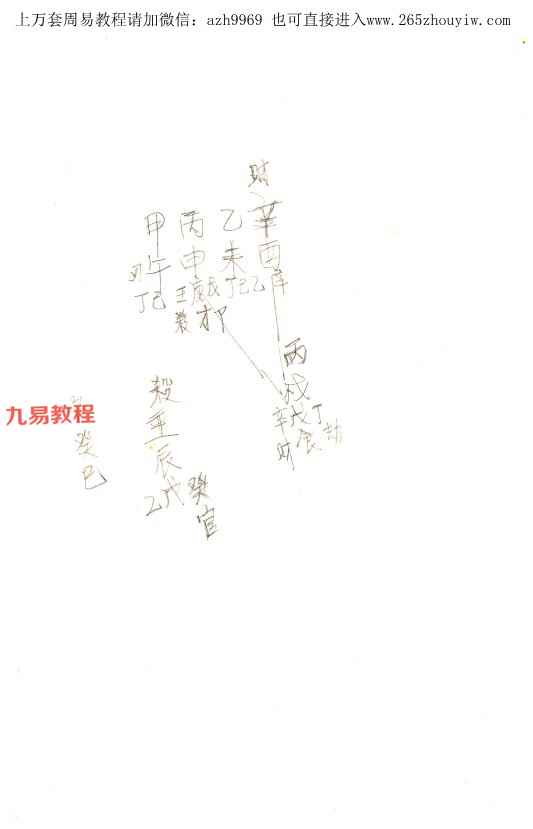 上万套周易教程请加微信：azh9969 也可直接进入www.265zhouyiw.com
财
甲 丙 乙 辛
午 申 未 酉
丁己 壬庚戊 丁己乙 辛
煞 才 卩
丙
戌
辛戊丁
财 食 劫
九易教程
癸
巳
煞
壬
辰
乙戊癸
官